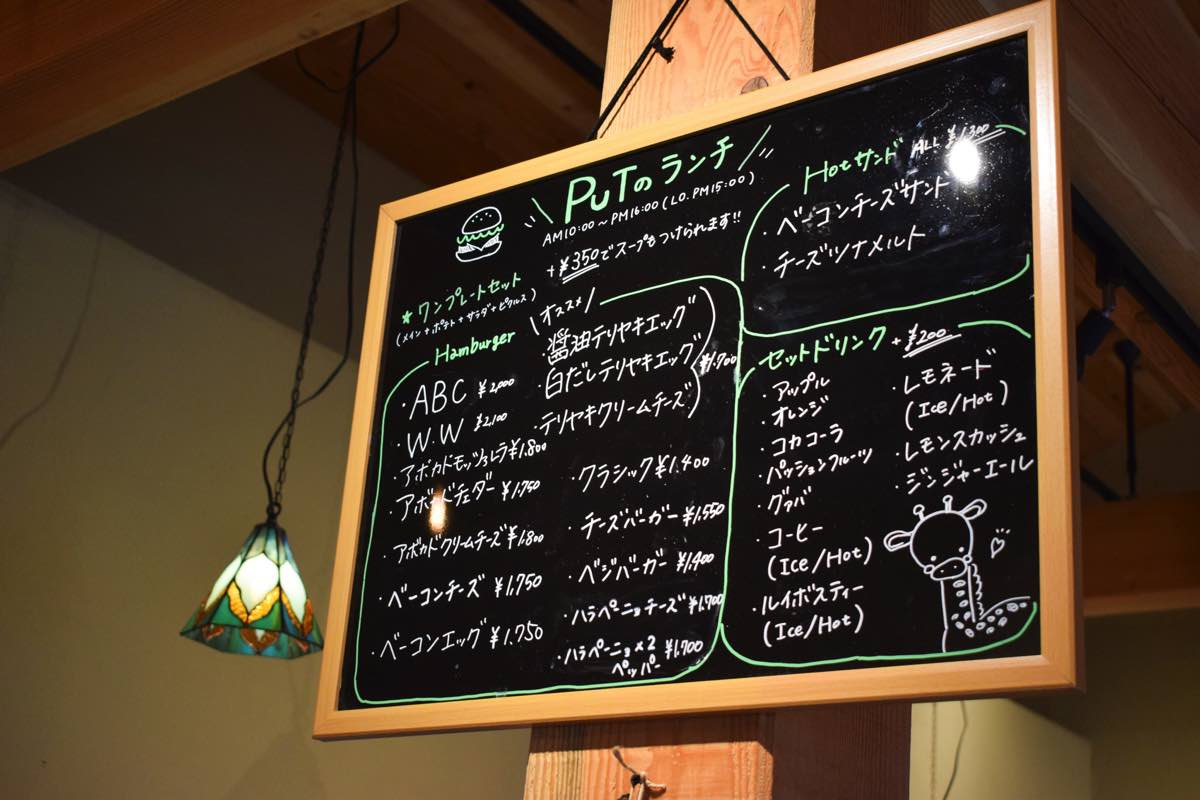 PuTのランチ
AM10:00~PM16:00(LO.PM15:00)
+¥350でスープもつけられます!!
★ワンプレートセット
(メイン+ポテト+サラダ+ピクルス)
Hamburger
・ABC ¥2,000
・W.W ¥2,100
・アボカドモッツァレラ¥1,800
・アボカドチェダー ¥1,750
・アボカドクリームチーズ¥1,800
・ベーコンチーズ ¥1,750
・ベーコンエッグ ¥1,750
\オススメ/
・醤油テリヤキエッグ
・白だしテリヤキエッグ
・テリヤキクリームチーズ
¥1,700
・クラシック¥1,400
・チーズバーガー ¥1,550
・ベジバーガー ¥1,400
・ハラペーニョチーズ¥1,700
・ハラペーニョ×2
ペッパー ¥1,700
Hotサンド ALL ¥1,300
・ベーコンチーズサンド
・チーズツナメルト
セットドリンク +¥200
・アップル
・オレンジ
・コカコーラ
・パッションフルーツ
・グァバ
・コーヒー
(Ice/Hot)
・ルイボスティー
(Ice/Hot)
・レモネード
(Ice/Hot)
・レモンスカッシュ
・ジンジャーエール